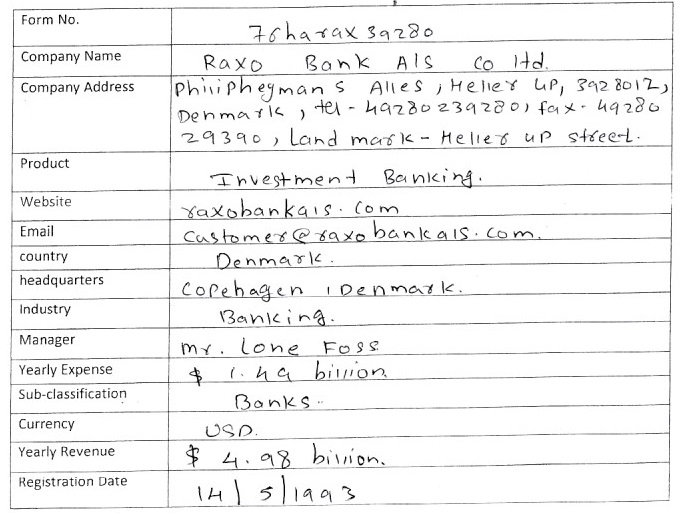 Form No. 76harax39280
Company Name Raxo Bank AlS Co ltd.
Company Address Philipheyman s Alles, Heller UP, 3928012,
Denmark, tel - 49280239280, fax - 49280
29390, Land mark - Heller up street.
Product Investment Banking.
Website raxobankals.com
Email customer@raxobankals.com.
country Denmark.
headquarters Copehagen, Denmark.
Industry Banking.
Manager mr. lone Foss
Yearly Expense $ 1.49 billion
Sub-classification Banks.
Currency USD.
Yearly Revenue $ 4.98 billion.
Registration Date 14/5/1993